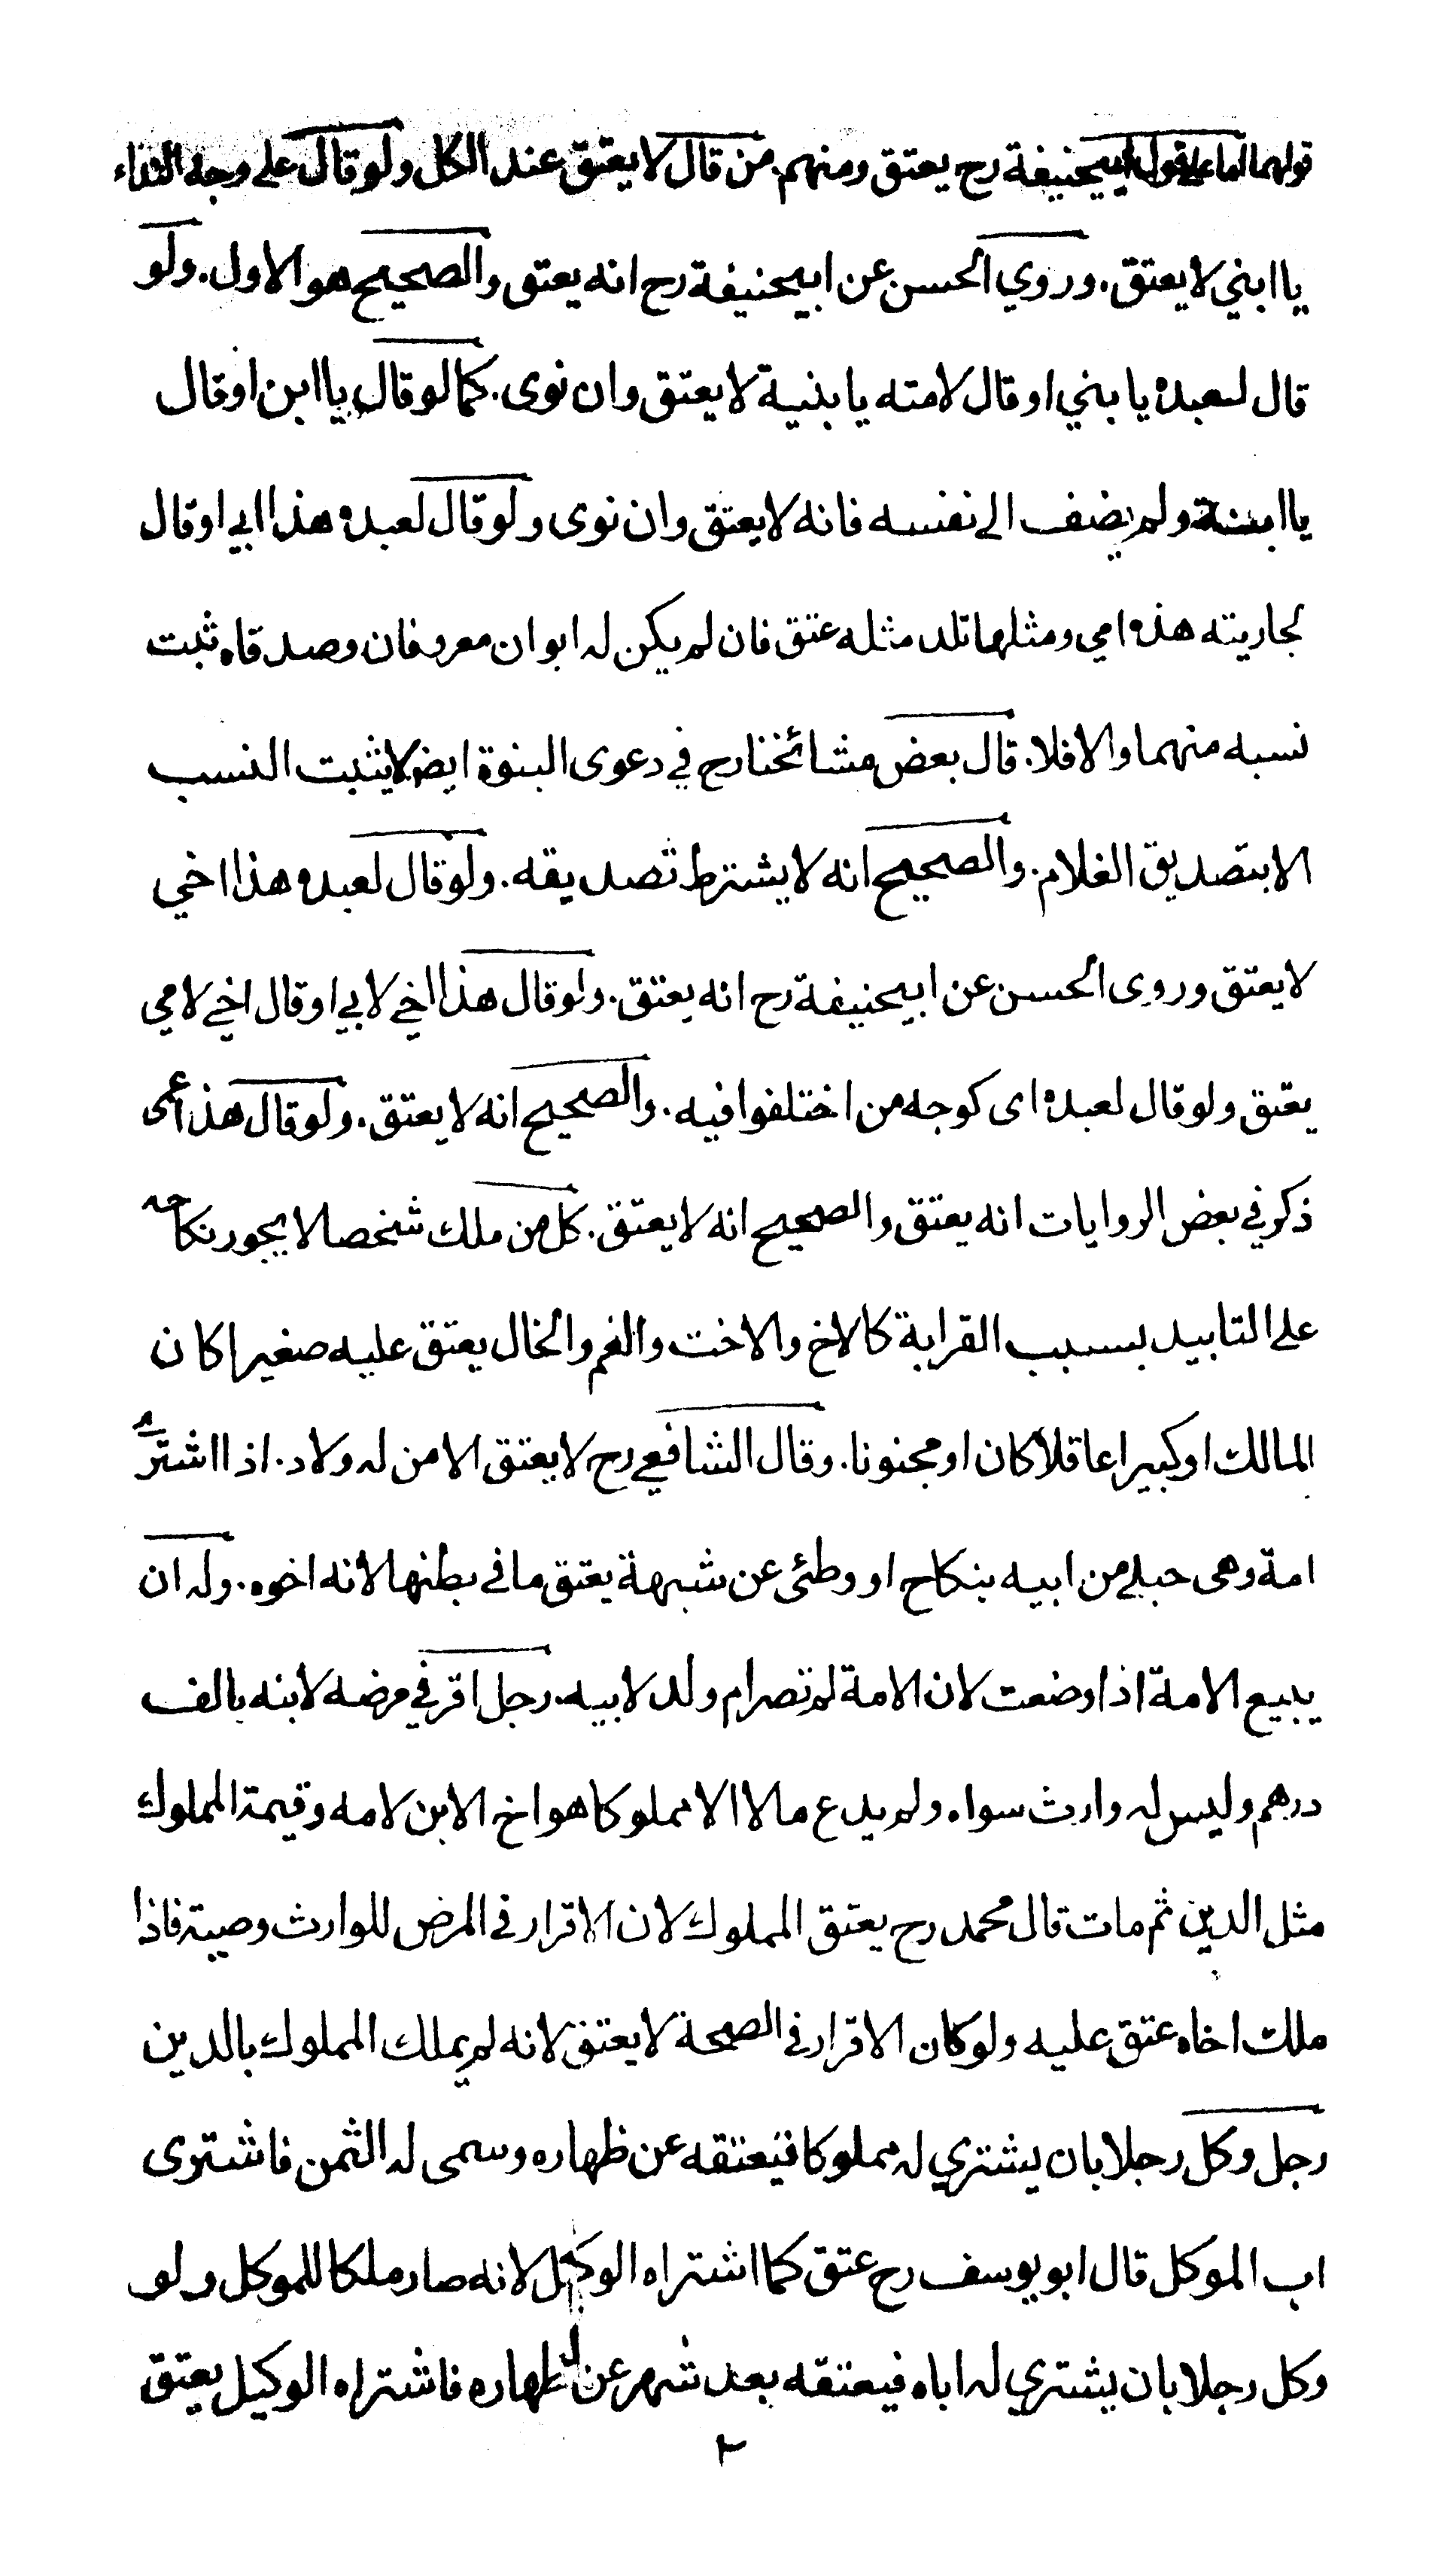 قولهما اما على قول ابيحنيفة رح يعتق ومنهم من قال لا يعتق عند الكل ولو قال على وجه النداء
يا ابني لا يعتق . وروي الحسن عن ابيحنيفة رح انه يعتق والصحيح هو الاول . ولو
قال لعبده يا بني او قال لامته يا بنية لا يعتق وان نوى . كما لو قال يا ابن او قال
يا ابنة ولم يضف الى نفسه فانه لا يعتق وان نوى ولو قال لعبده هذا ابي او قال
لجاريته هذه امي ومثلها تلد مثله عتق فان لم يكن له ابوان معروفان وصدقاه ثبت
نسبه منهما والا فلا . قال بعض مشائخنا رح في دعوى البنوة ايضا لا يثبت النسب
الا بتصديق الغلام . والصحيح انه لا يشترط تصديقه . ولو قال لعبده هذا اخي
لا يعتق وروى الحسن عن ابيحنيفة رح انه يعتق . ولو قال هذا اخي لابي او قال اخي لامي
يعتق ولو قال لعبده اى كوجه من اختلفوا فيه . والصحيح انه لا يعتق . ولو قال هذا عمى
ذكر في بعض الروايات انه يعتق والصحيح انه لا يعتق . كل من ملك شخصا لا يجوز نكاحه
على التابيد بسبب القرابة كالاخ والاخت والعم والخال يعتق عليه صغيرا كان
المالك او كبيرا عاقلا كان او مجنونا . وقال الشافعي رح لا يعتق الا من له ولاد . اذا اشترى
امة وهى حبلى من ابيه بنكاح او وطئى عن شبهة يعتق ما في بطنها لانه اخوه . وله ان
يبيع الامة اذا وضعت لان الامة لم تصر ام ولد لابيه . رجل اقر في مرضه لابنه بالف
درهم وليس له وارث سواه ولم يدع مالا الا مملوكا هو اخ الابن لامه وقيمة المملوك
مثل الدين ثم مات قال محمد رح يعتق المملوك لان الاقرار في المرض للوارث وصية فاذا
ملك اخاه عتق عليه ولو كان الاقرار في الصحة لا يعتق لانه لم يملك المملوك بالدين
رجل وكل رجلا بان يشتري له مملوكا فيعتقه عن ظهاره وسمى له الثمن فاشترى
اب الموكل قال ابو يوسف رح عتق كما اشتراه الوكيل لانه صار ملكا للموكل ولو
وكل رجلا بان يشتري له اباه فيعتقه بعد شهر عن ظهاره فاشتراه الوكيل يعتق